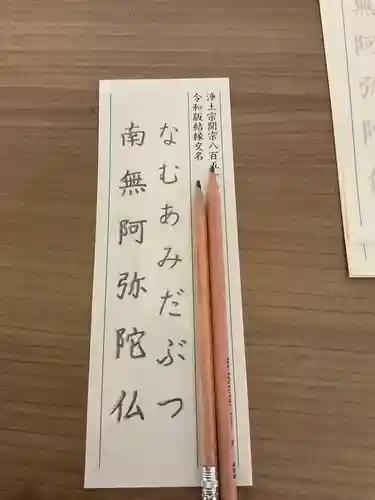 浄土宗開宗八百五
令和版結縁交名
なむあみだぶつ
南無阿弥陀仏
無阿弥陀